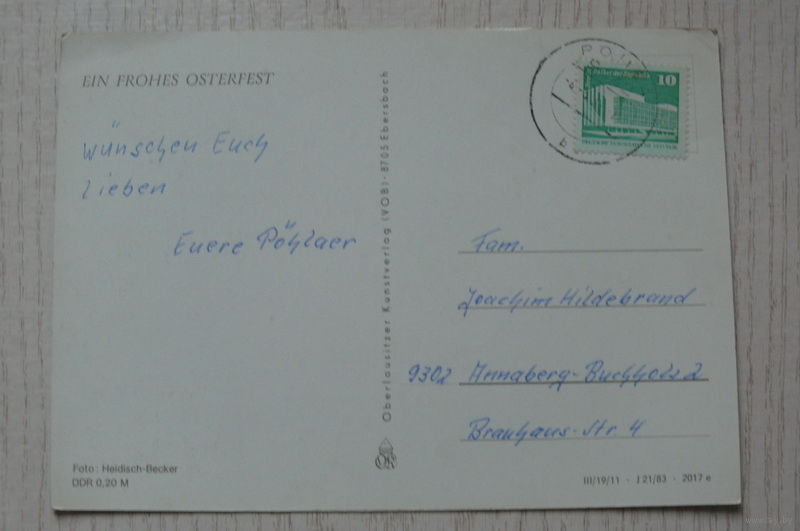 EIN FROHES OSTERFEST
wünschen Euch
Lieben
Euere Pöhlaer
Foto: Heidisch-Becker
DDR 0,20 M
Oberlausitzer Kunstverlag (VOB) · 8705 Ebersbach
10
Fam.
Joachim Hildebrand
9302 Annaberg-Buchholz 2
Brauhaus-Str. 4
III/19/11 · J 21/83 · 2017 e